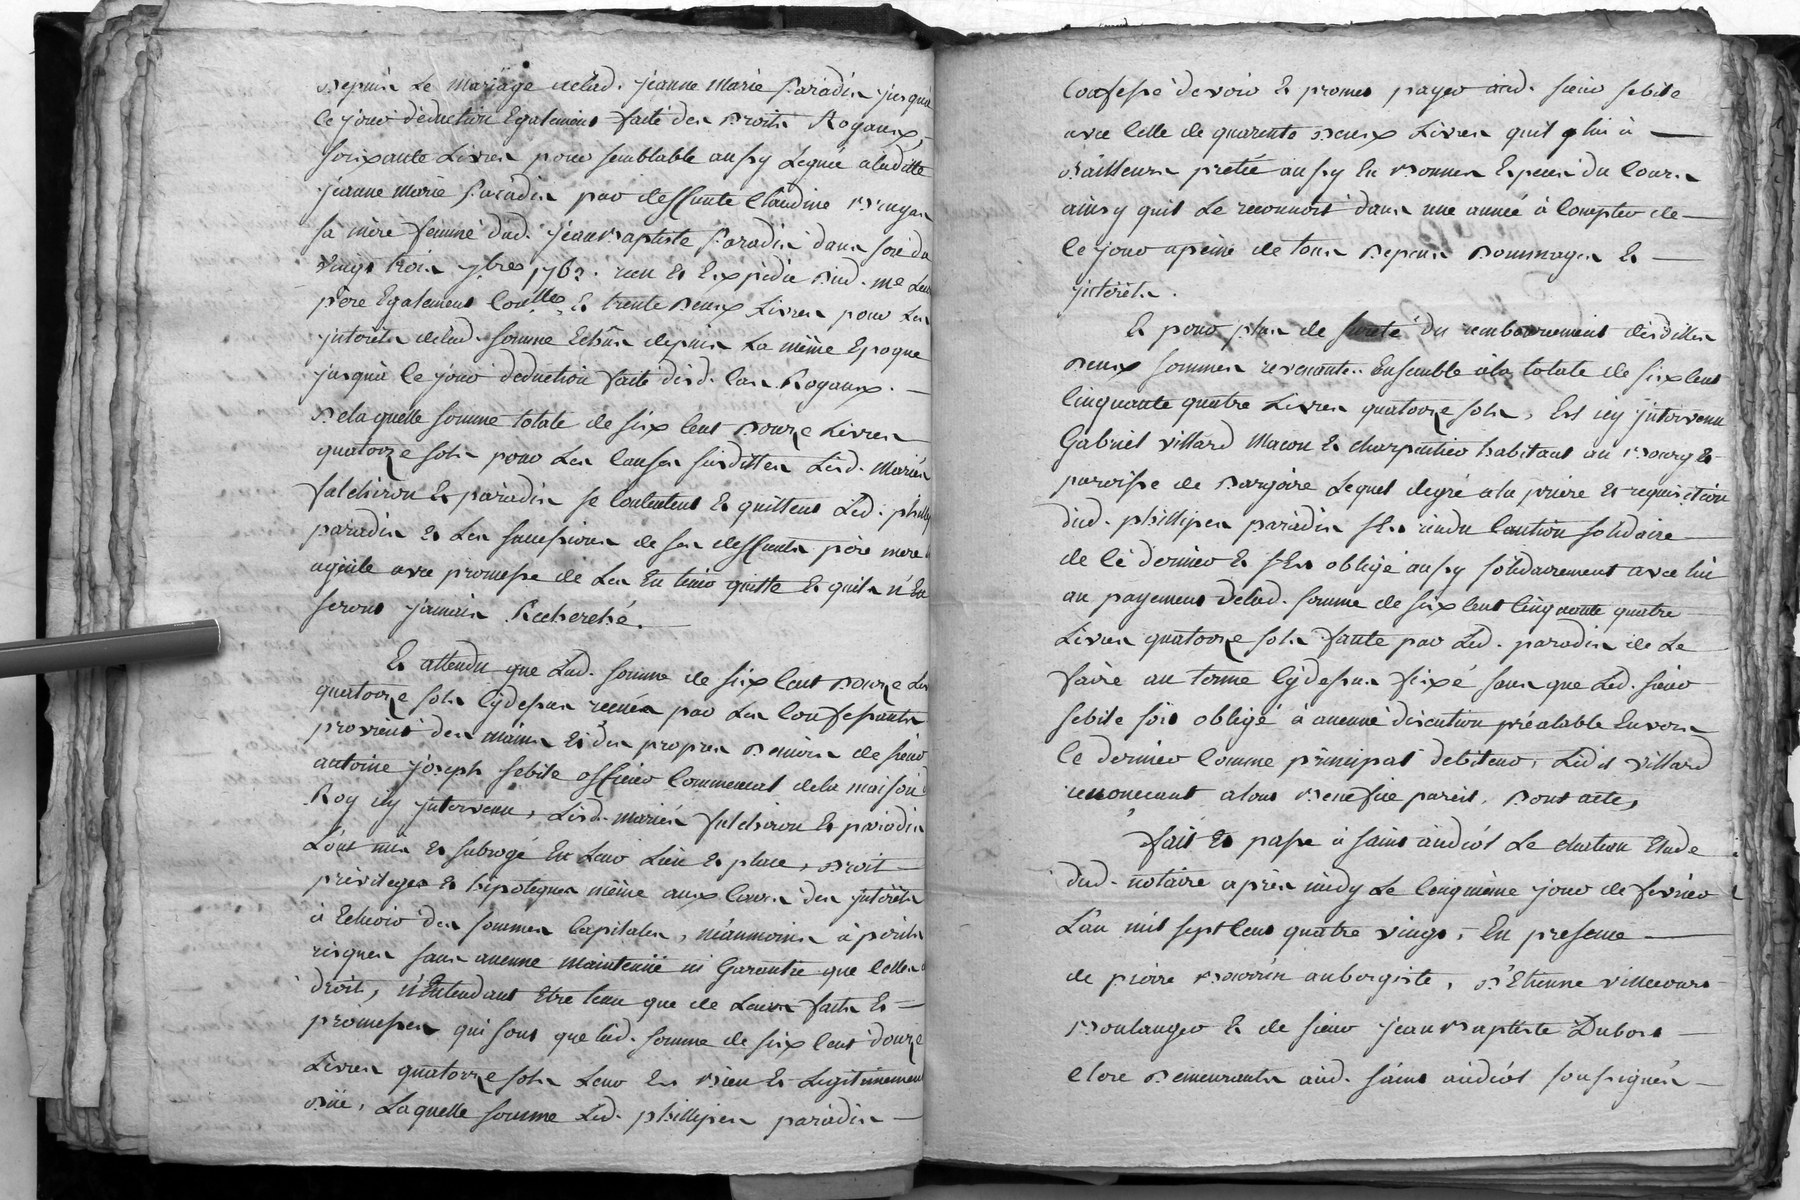 depuis le mariage delad. jeanne marie Paradis jusqua
ce jour déduction Egalement faite des droits Royaux,
soixante Livres pour semblable aussy Legué aladitte
jeanne marie Paradis par deffunte Claudine
sa mère femme dud. jean Baptiste Paradis dans son du
vingt trois 7bre 1763. recu et Expedie dud. me Leur
père Egalement Contllé, Et trente deux Livres pour Les
jnterets delad. somme Echus depuis La même Epoque
jusqua ce jour deduction faite desd. cas Royaux.
De laquelle somme totale de six cent douze Livres
quatorze sols pour Les Causes susdittes Lesd. mariés
falchiron Et paradis se Contentent Et quittent Led. phillipes
paradis Et Les successions de ses deffunts père mere
ayeule avec promesse de Les En tenir quitte Et quils n'En
seront jamais Recherché.
Et attendu que Lad. somme de six cent douze Livres
quatorze sols cydessus recués par Les Confessants
provient des mains Et des propres deniers de sieur
antoine joseph sebile officier Commensal dela maison du
Roy icy jntervenu, Lesd. mariés falchiron Et paradis
L'ont mis Et subrogé En Leur Lieu Et place, droit
privileges Et hipoteques même aux Cours des jnterets
à Echeoir des sommes Capitales, néanmoins à perils
risques sans aucune maintenüe ni Garantie que celle de
droit, n'Entendant Etre tenu que de Leurs faits Et
promesses qui sont que Lad. somme de six cent douze
Livres quatorze sols Leur Est bien Et Legitimement
düe, Laquelle somme Led. phillipes paradis
Confesse devoir Et promet payer aud. sieur sebile
avec Celle de quarente deux Livres quil Lui à
d'ailleurs pretée aussy En bonnes Especes du Cours
ainsy quil Le reconnoit dans une année à Compter de
ce jour apeine de tous depens Dommages Et
jnterets.
Et pour plus de sureté du remboursement desdittes
deux sommes revenantes Ensemble à la totale de six cent
Cinquante quatre Livres quatorze sols, Est icy jntervenu
Gabriel villard Macon Et charpentier habitant au Bourg Et
paroisse de Marjoire Lequel degré ala priere Et requisition
dud. phillipes paradis sEst rendu Caution solidaire
de Ce dernier Et sEst obligé aussy solidairement avec lui
au payement delad. somme de six cent Cinquante quatre
Livres quatorze sols faute par Led. paradis de Le
faire au terme Cydessus fixé sans que Led. sieur
sebile soit obligé à aucune discution préalable Envers
Ce dernier Comme principal debiteur, Ledit villard
renoncant atous Benefice pareil. Dont acte,
fait Et passé à saint andéol Le chateau Etude
dud. notaire après midy Le Cinqième jour de fevrier
L'an mil sept Cent quatre vingt, En presence
de pierre aubergiste, D'Etienne villecourt
Boulanger Et de sieur jean Baptiste Dubost
Clerc demeurants aud. saint andéol soussignés